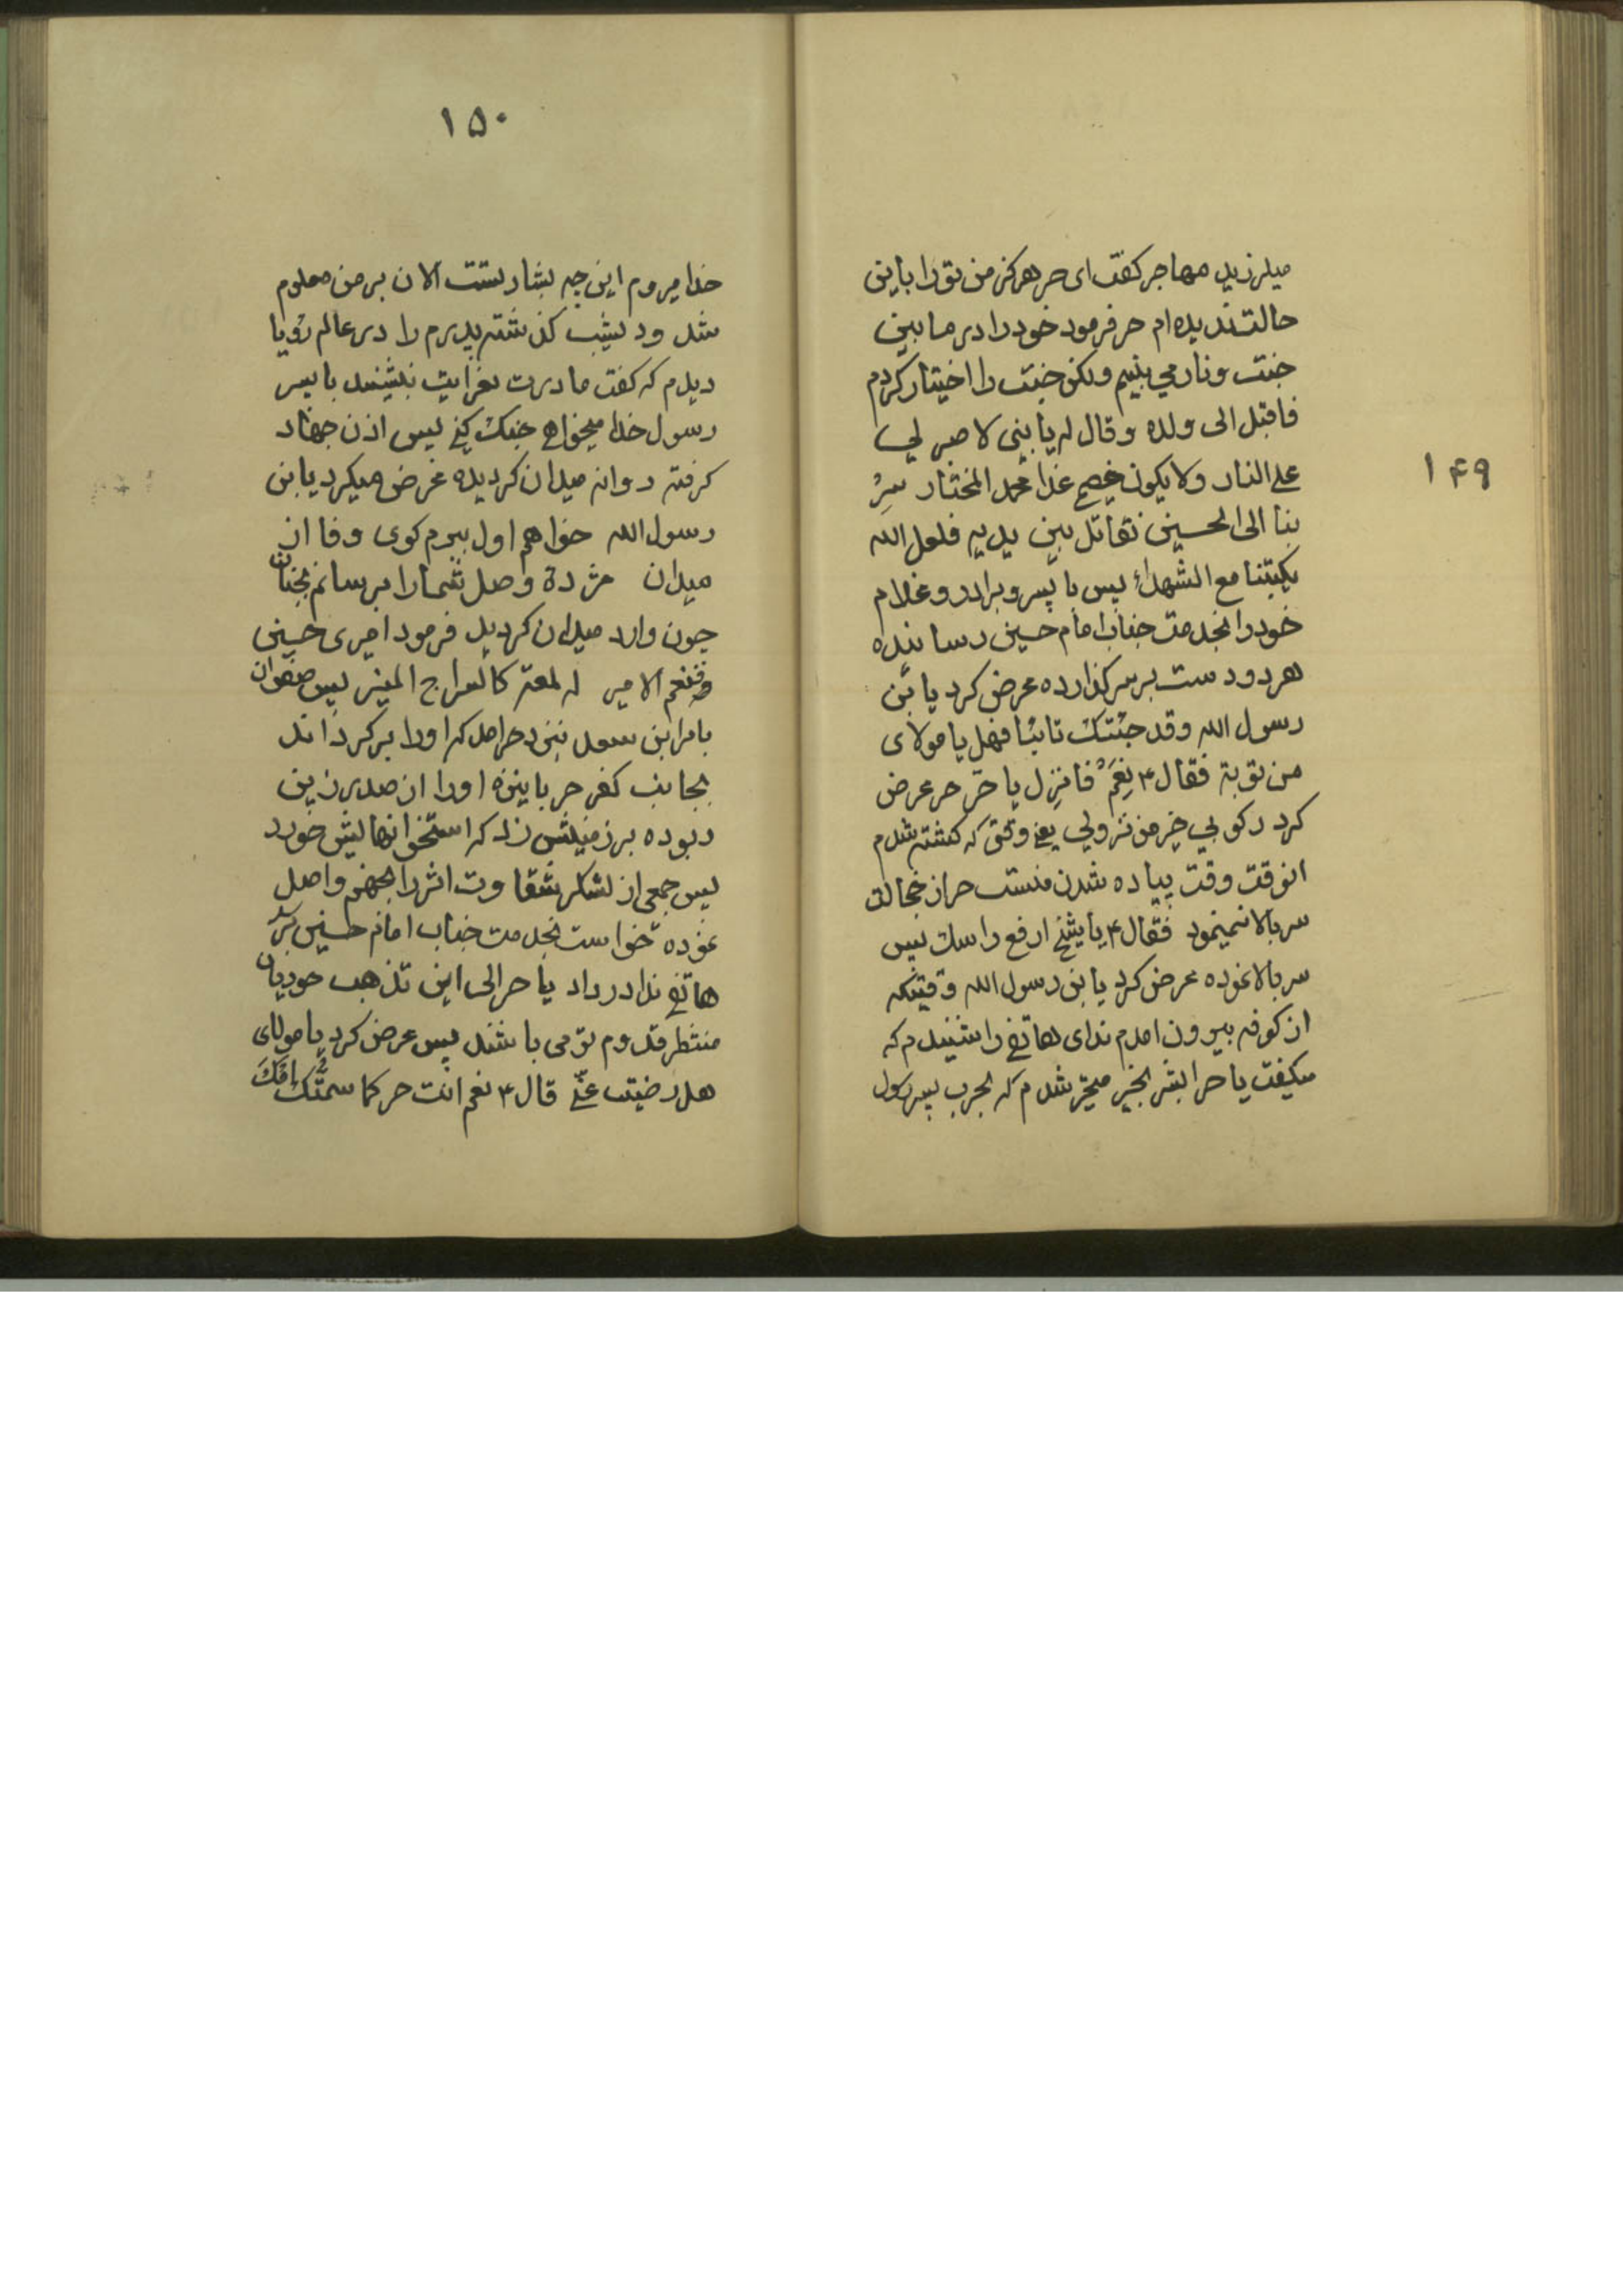 ۱۴۹
میلرزید مهاجر کفت ای حر هرکز من تو را باین
حالت ندیده ام حر فرمود خود را در ما بین
جنت و نار می بینم ولکن جنت را اختیار کردم
فاقبل الی ولده و قال له یا بنی لا صبر لی
علی النار ولا یکون خصمی غدا محمد المختار سِرْ
بنا الی الحسین نقاتل بین یدیه فلعل الله
یکتبنا مع الشهداء پس با پسر و برادر و غلام
خود را بخدمت جناب امام حسین رسانیده
هر دو دست بر سر کذارده عرض کرد یا بن
رسول الله و قد جئتک تائبا فهل یا مولای
من توبة فقال ۴ نعم فانزل یا حر حر عرض
کرد رکوبی خیر من نزولی یعنی وقتی که کشته شدم
انوقت وقت پیاده شدن منست حر از خجالت
سر بالا نمینمود فقال ۴ یا شیخ ارفع راسک پس
سر بالا نموده عرض کرد یا بن رسول الله وقتیکه
از کوفه بیرون امدم ندای هاتفی را شنیدم که
میکفت یا حر ابشر بخیر متحیر شدم که بحرب پسر رسول
۱۵۰
خدا میروم این چه بشارتست الان بر من معلوم
شد و دیشب کذشته پدرم را در عالم رؤیا
دیدم که کفت مادرت بعزایت بنشیند با پسر
رسول خدا میخواهی جنک کنی پس اذن جهاد
کرفته روانه میدان کردیده عرض میکرد یا بن
رسول الله خواهم اول ببرم کوی وفا از
میدان مژدۀ وصل شما را برسانم بجنان
چون وارد میدان کردید فرمود امیری حسین
فنعم الامیر له لمعة کالسراج المنیر پس صفوان
بامر ابن سعد بنزد حر امد که او را برکرداند
بجانب کفر حر با نیزه او را از صدر زین
ربوده بر زمینش زد که استخوانهایش خورد
پس جمعی از لشکر شقاوت اثر را بجهنم واصل
نموده خواست بخدمت جناب امام حسین برکرد
هاتفی ندا در داد یا حر الی این تذهب حوریان
منتظر قدوم تو می باشند پس عرض کرد یا مولای
هل رضیت عنّی قال ۴ نعم انت حر کما سمتک امک